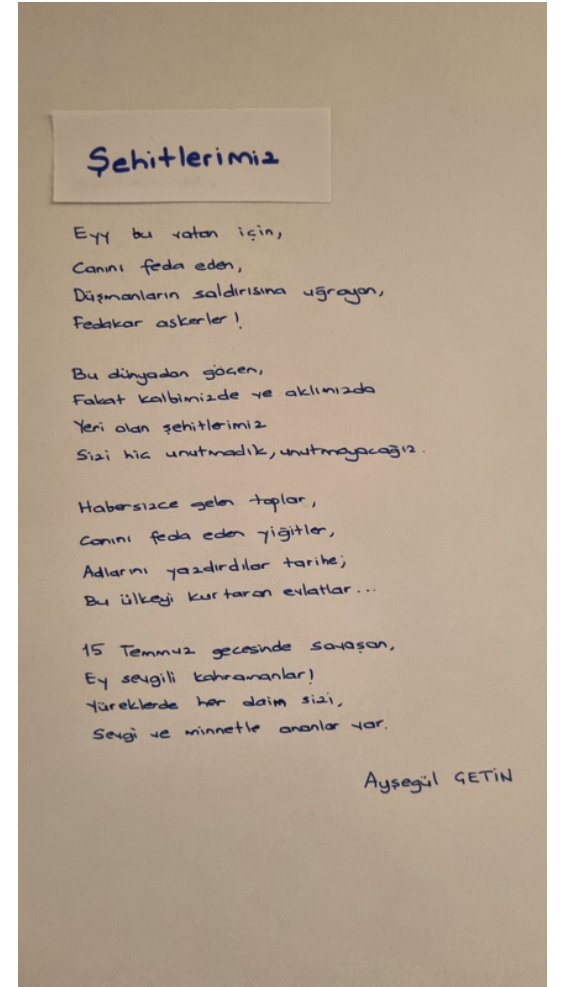 Şehitlerimiz
Eyy bu vatan için,
Canını feda eden,
Düşmanların saldırısına uğrayan,
Fedakar askerler!
Bu dünyadan göçen,
Fakat kalbimizde ve aklımızda
Yeri olan şehitlerimiz
Sizi hiç unutmadık, unutmayacağız.
Habersizce gelen toplar,
Canını feda eden yiğitler,
Adlarını yazdırdılar tarihe;
Bu ülkeyi kurtaran evlatlar...
15 Temmuz gecesinde savaşan,
Ey sevgili kahramanlar!
Yüreklerde her daim sizi,
Sevgi ve minnetle ananlar var.
Ayşegül ÇETİN